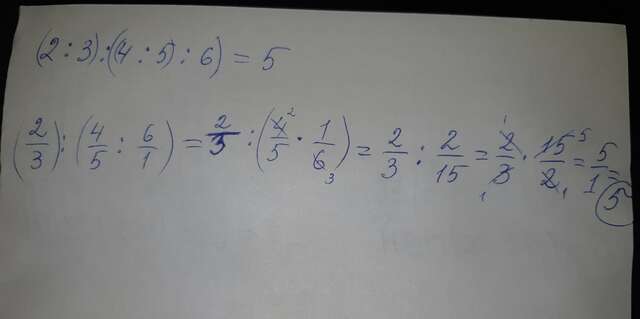 (2 : 3) : (4 : 5) : 6) = 5
(2/3) : (4/5 : 6/1) = 2/3 : (4²/5 · 1/6₃) = 2/3 : 2/15 = ¹2/3₁ · 15⁵/2₁ = 5/1 = 5